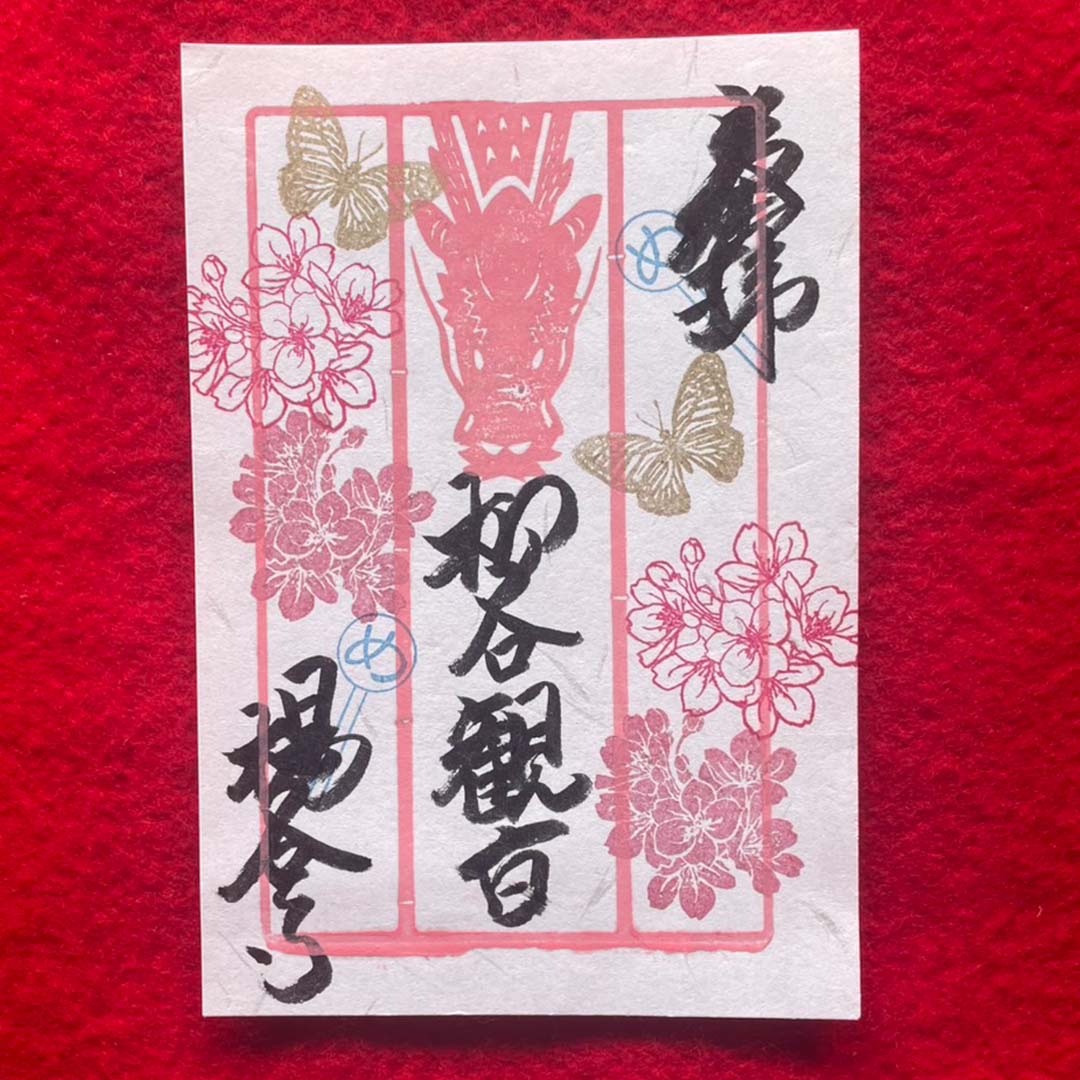 奉拝
め
柳谷観音
め
楊谷寺